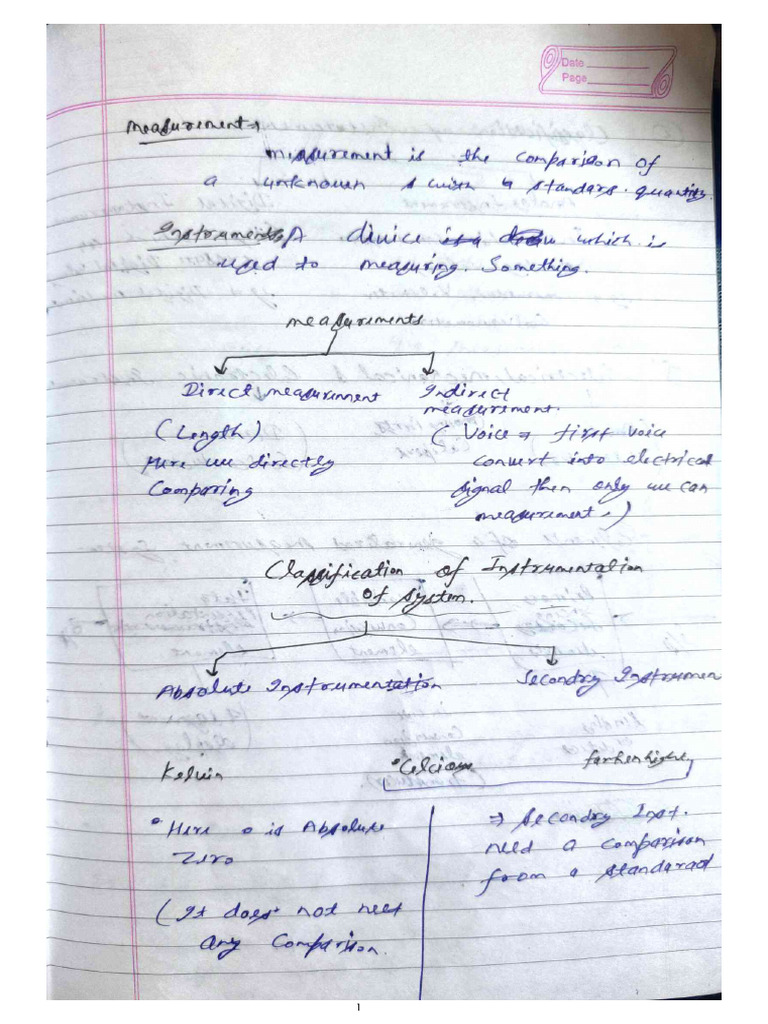 Date
Page
Measurement→
measurement is the comparison of
a unknown with standars. quantity
Instrument A device which is
used to measuring. Something.
measurements
Direct measurement Indirect
measurement.
(Length) (Voice → first voice
Here we directly convert into electrical
Comparing signal then only we can
measurement.)
Classification of Instrumentation
of system.
Absolute Instrumentation Secondry Instrumen
Kelvin Celcious farhenhight
• Here 0 is Absolute ⇒ Secondry Inst.
Zero need a comparison
from a standarad
(It does not need
any Comparison.
1